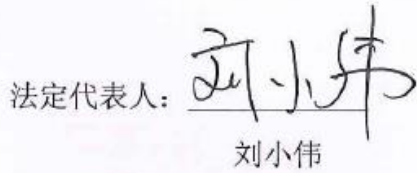 法定代表人：刘小伟
刘小伟